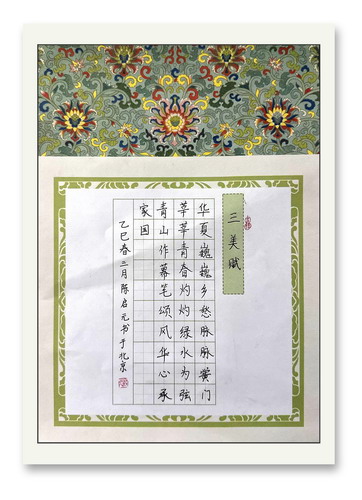 三美赋
华夏巍巍乡愁脉脉黉门
莘莘青春灼灼绿水为弦
青山作幕笔颂风华心承
家国
乙巳春二月陈启元书于北京